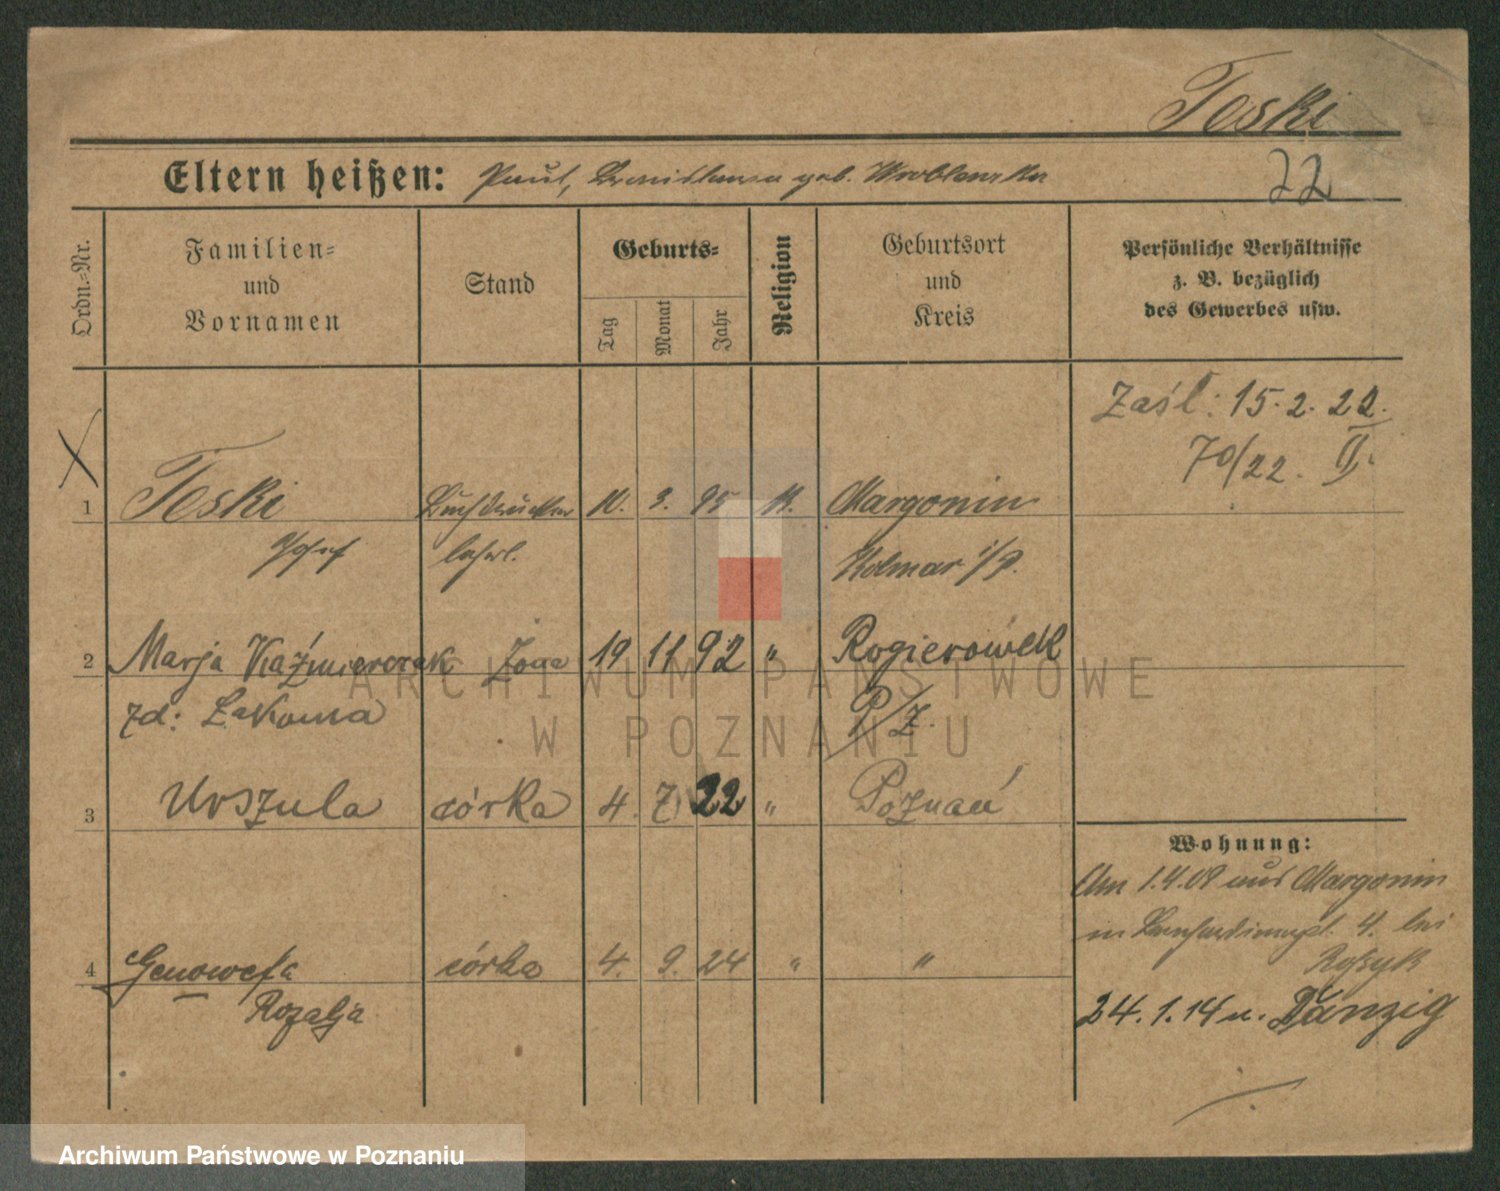 Teski
Eltern heißen: Paul, Bronislawa geb. Wroblewska
22
Ordn.-Nr.
Familien- und Vornamen
Stand
Geburts-
Tag
Monat
Jahr
Religion
Geburtsort und Kreis
Persönliche Verhältnisse
z. B. bezüglich
des Gewerbes usw.
Zaśl: 15.2.22.
70/22. II.
1 Teski Buchdrucker 10. 3. 95 K. Margonin
Josef lehrl. Kolmar i/P.
2 Marja Kaźmierczak Żona 19 11 92 " Rogierówek
zd: Łakoma P/Z.
3 Urszula córka 4. 7. 22 " Poznań
Wohnung:
Am 1.4.09 aus Margonin
in 4. bei
24.1.14 n. Danzig
4 Genowefa córka 4. 9. 24 " "
Rozalja
ARCHIWUM PAŃSTWOWE
W POZNANIU
Archiwum Państwowe w Poznaniu